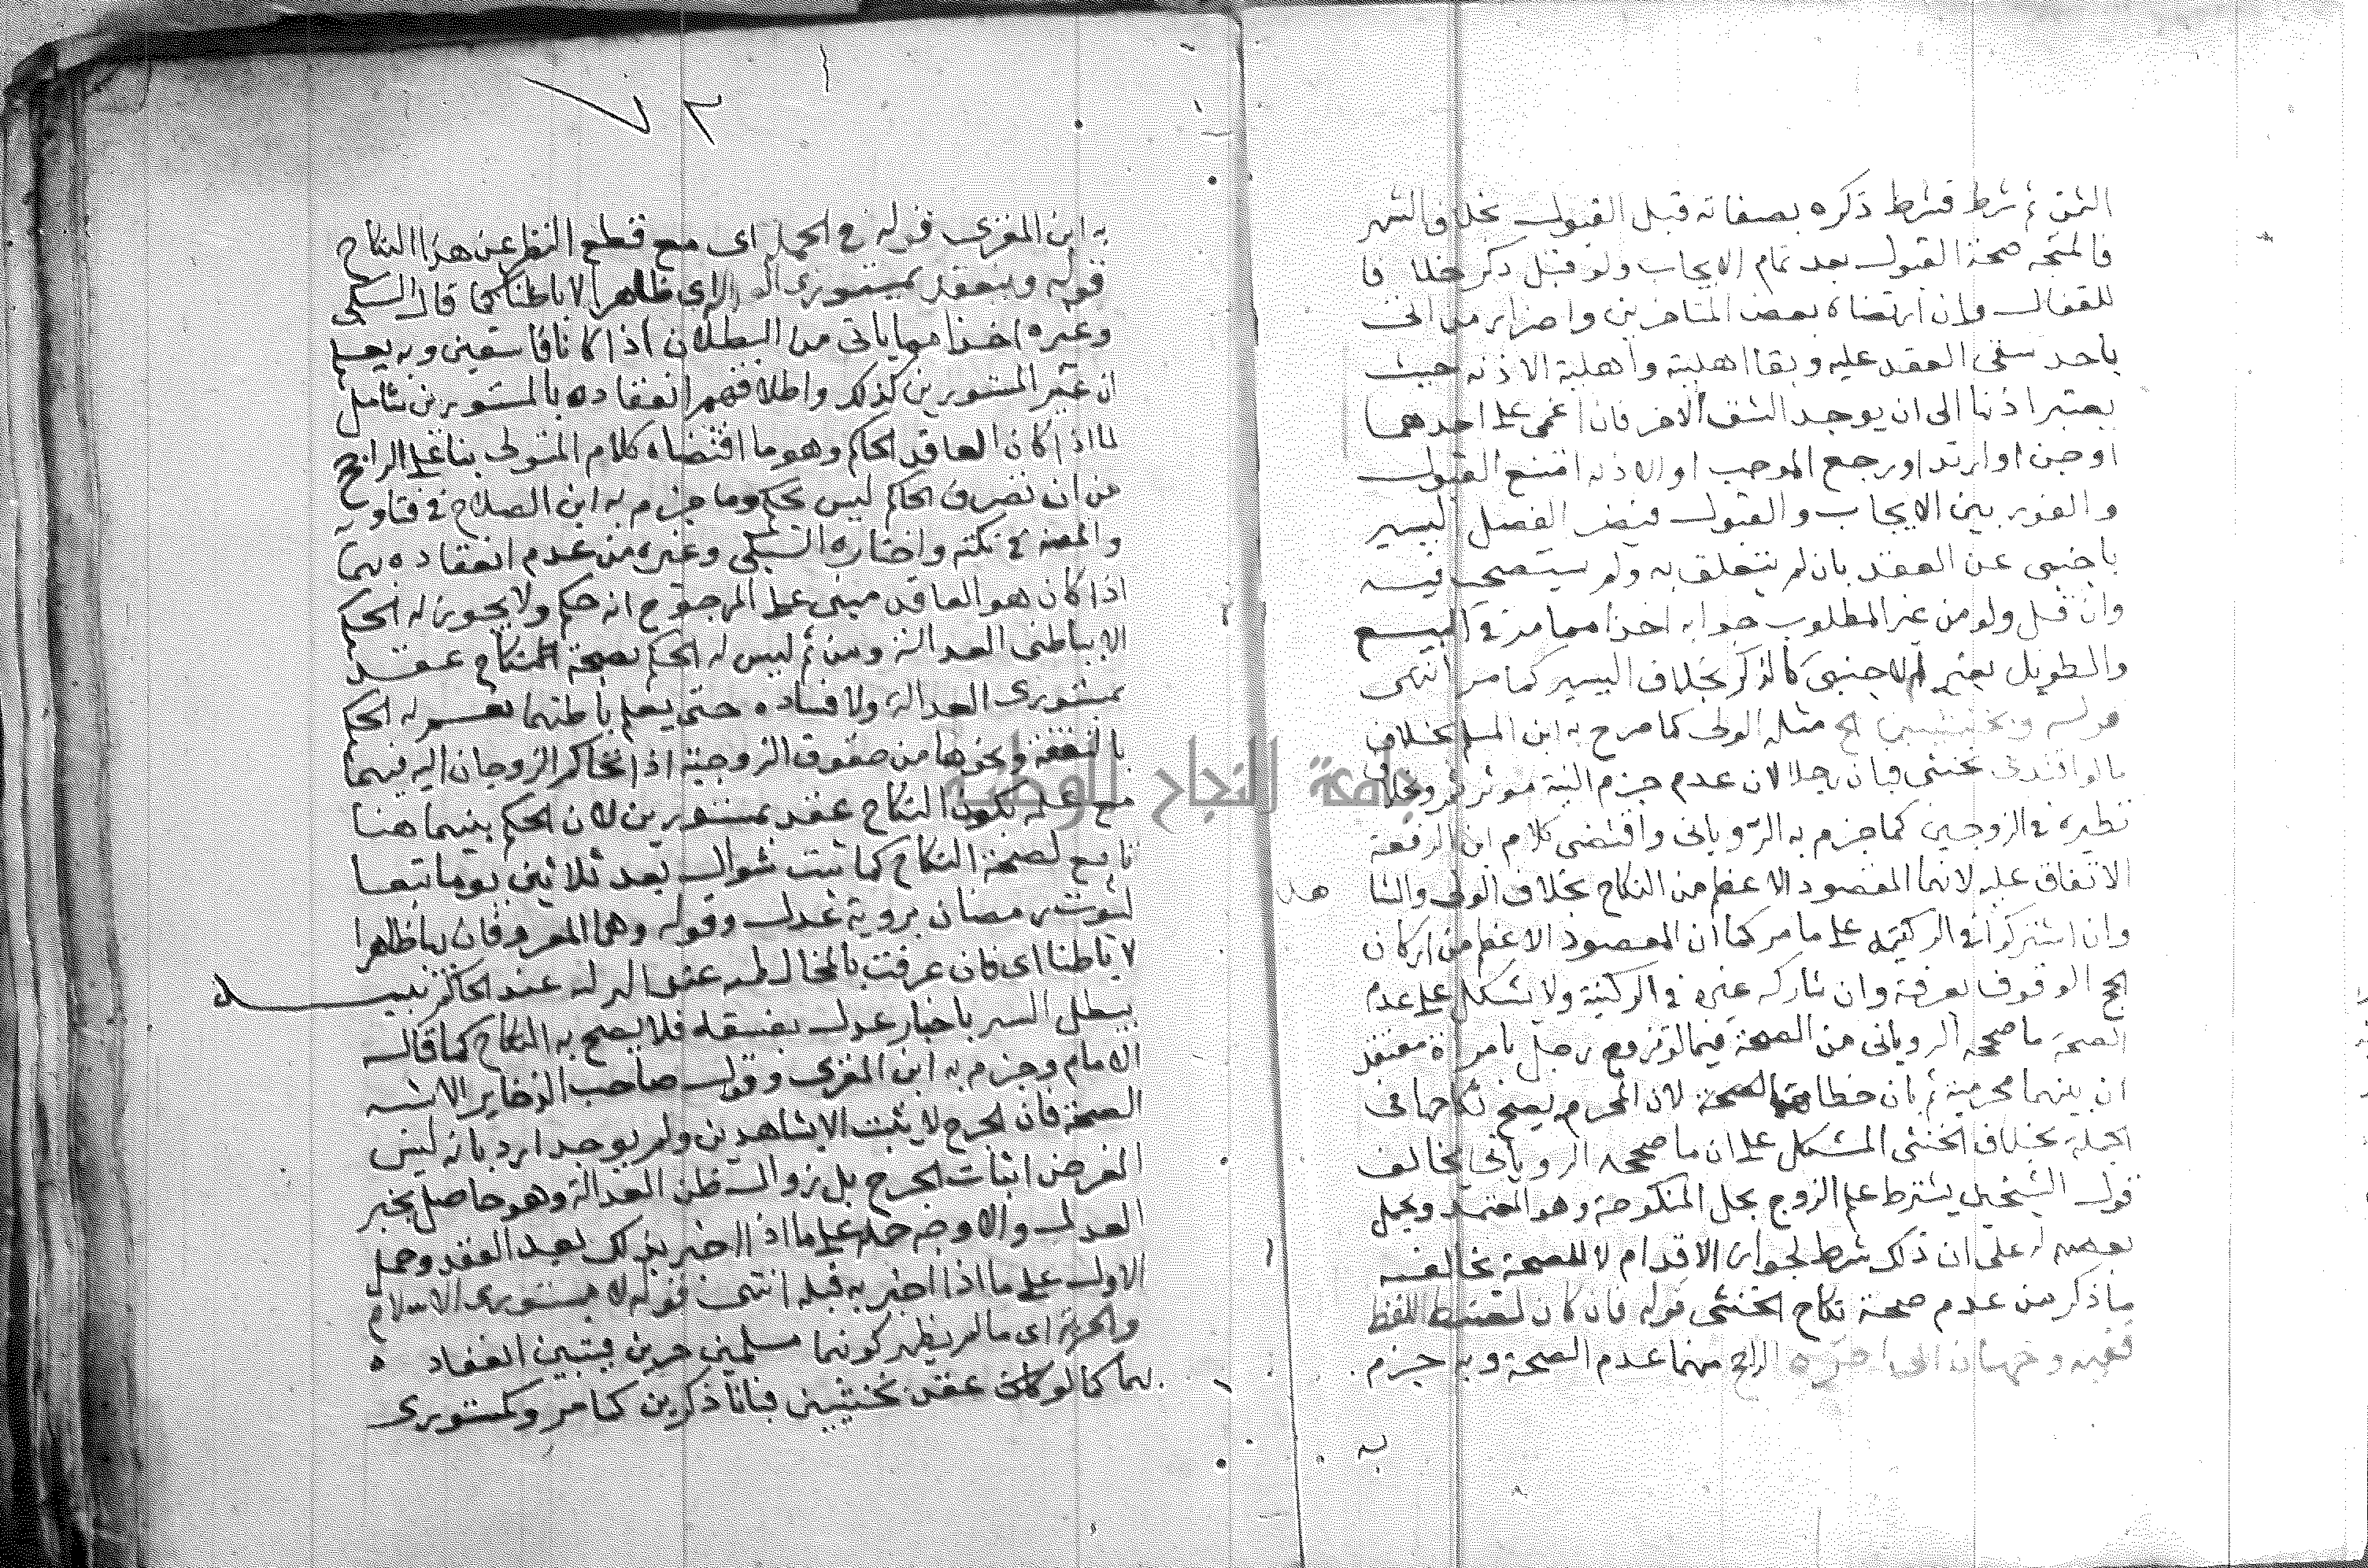 الثمن ثم شرط فشرط ذكره بصفاته قبل القبول بخلاف المهر
فالمتجه صحة القبول بعد تمام الايجاب ولو قبل ذكر خلافا
للقفال وان ارتضاه بعض المتاخرين واصرار من اتى
باحد شقى العقد عليه وبقا اهليته واهلية الاذنه حيث
يعتبر اذنها الى ان يوجد الشق الاخر فان اغمى على احدهما
او جن او ارتد او رجع الموجب او الاذنه امتنع القبول
والفور بين الايجاب والقبول فيضر الفصل اليسير
باجنبى عن العقد بان لم يتعلق به ولم يستحب فيه
وان قل ولو من غير المطلوب جوابه اخذا مما مر فى البيع
والطويل بغير الاجنبى كالذكر بخلاف اليسير كما مر انتهى
قوله وبخنثيين الخ مثله الولى كما صرح به ابن المسلم بخلاف
مالو اقتدى بخنثى فبان رجلا لان عدم جزم النية مؤثر وبخلاف
نظيره فى الزوجين كما جزم به الرويانى واقتضى كلام ابن الرفعة
الاتفاق عليه لانهما المقصود الاعظم من النكاح بخلاف الولى والشا هد
وان اشتركوا فى الركنية على ما مر كما ان المقصود الاعظم من اركان
الحج الوقوف بعرفة وان شاركه غيره فى الركنية ولا يشكل على عدم
الصحة ما صححه الرويانى من الصحة فيما لو تزوج رجل بامراة معتقد
ان بينهما محرمية ثم بان خطاه الصحة لان المحرم يصح نكاحها فى
الجملة بخلاف الخنثى المشكل على ان ما صححه الرويانى يخالف
قول الشيخين يشترط علم الزوج بحل المنكوحة وهو المعتمد وحمل
بعضهم له على ان ذلك شرط لجواز الاقدام لا للصحة يخالفه
ما ذكر من عدم صحة نكاح الخنثى قوله فان كان لضبط اللفظ
ففيه وجهان الى اخره الراجح منهما عدم الصحة وبه جزم
به
٧٣
به ابن المغرى قوله فى الجملة اى مع قطع النظر عن هذا النكاح
قوله وينعقد بمستورى العدالة اى ظاهرا لا باطنا كما قال السبكى
وغيره اخذا مما ياتى من البطلان اذا كانا فاسقين وبه يعلم
ان غير المستورين كذلك واطلاقهم انعقاده بالمستورين شامل
لما اذا كان العاقد الحاكم وهو ما اقتضاه كلام المتولى بناء على الراجح
من ان تصرف الحاكم ليس بحكم وما جزم به ابن الصلاح فى فتاويه
والمصنف فى نكته واختاره السبكى وغيره من عدم انعقاده بهما
اذا كان هو العاقد مبنى على المرجوح انه حكم ولا يجوز له الحكم
الا بباطنى العدالة ومن ثم ليس له الحكم بصحة النكاح عقد
بمستورى العدالة ولا فساده حتى يعلم باطنهما نعم له الحكم
بالنفقة ونحوها من حقوق الزوجية اذا تحاكم الزوجان اليه فيهما
مع علمه بكون النكاح عقد بمستورين لان الحكم بينهما هنا
تابع لصحة النكاح كما ثبت شوال بعد ثلاثين يوما تبعا
لثبوت رمضان بروية عدل وقوله وهما المعروفان بها ظاهرا
لا باطنا اى فان عرفت بالمخالطه عند الحاكم تنبيه
يبطل الستر باخبار عدل بفسقه فلا يصح به النكاح كما قاله
الامام وجزم به ابن المغرى وقول صاحب الذخاير الاشبه
الصحة فان الجرح لا يثبت الا بشاهدين ولم يوجدا رد بانه ليس
الغرض اثبات الجرح بل زوال ظن العدالة وهو حاصل بخبر
العدل والاوجه حمله على ما اذا اخبر بذلك بعد العقد وحمل
الاول على ما اذا اخبر به قبله انتهى قوله لا مستورى الاسلام
والحرية اى ما لم يظهر كونهما مسلمين حرين فيتبين انعقاده
بهما كما لو كان عقد بخنثيين فبانا ذكرين كما مر وكمستورى
جامعة النجاح الوطنية